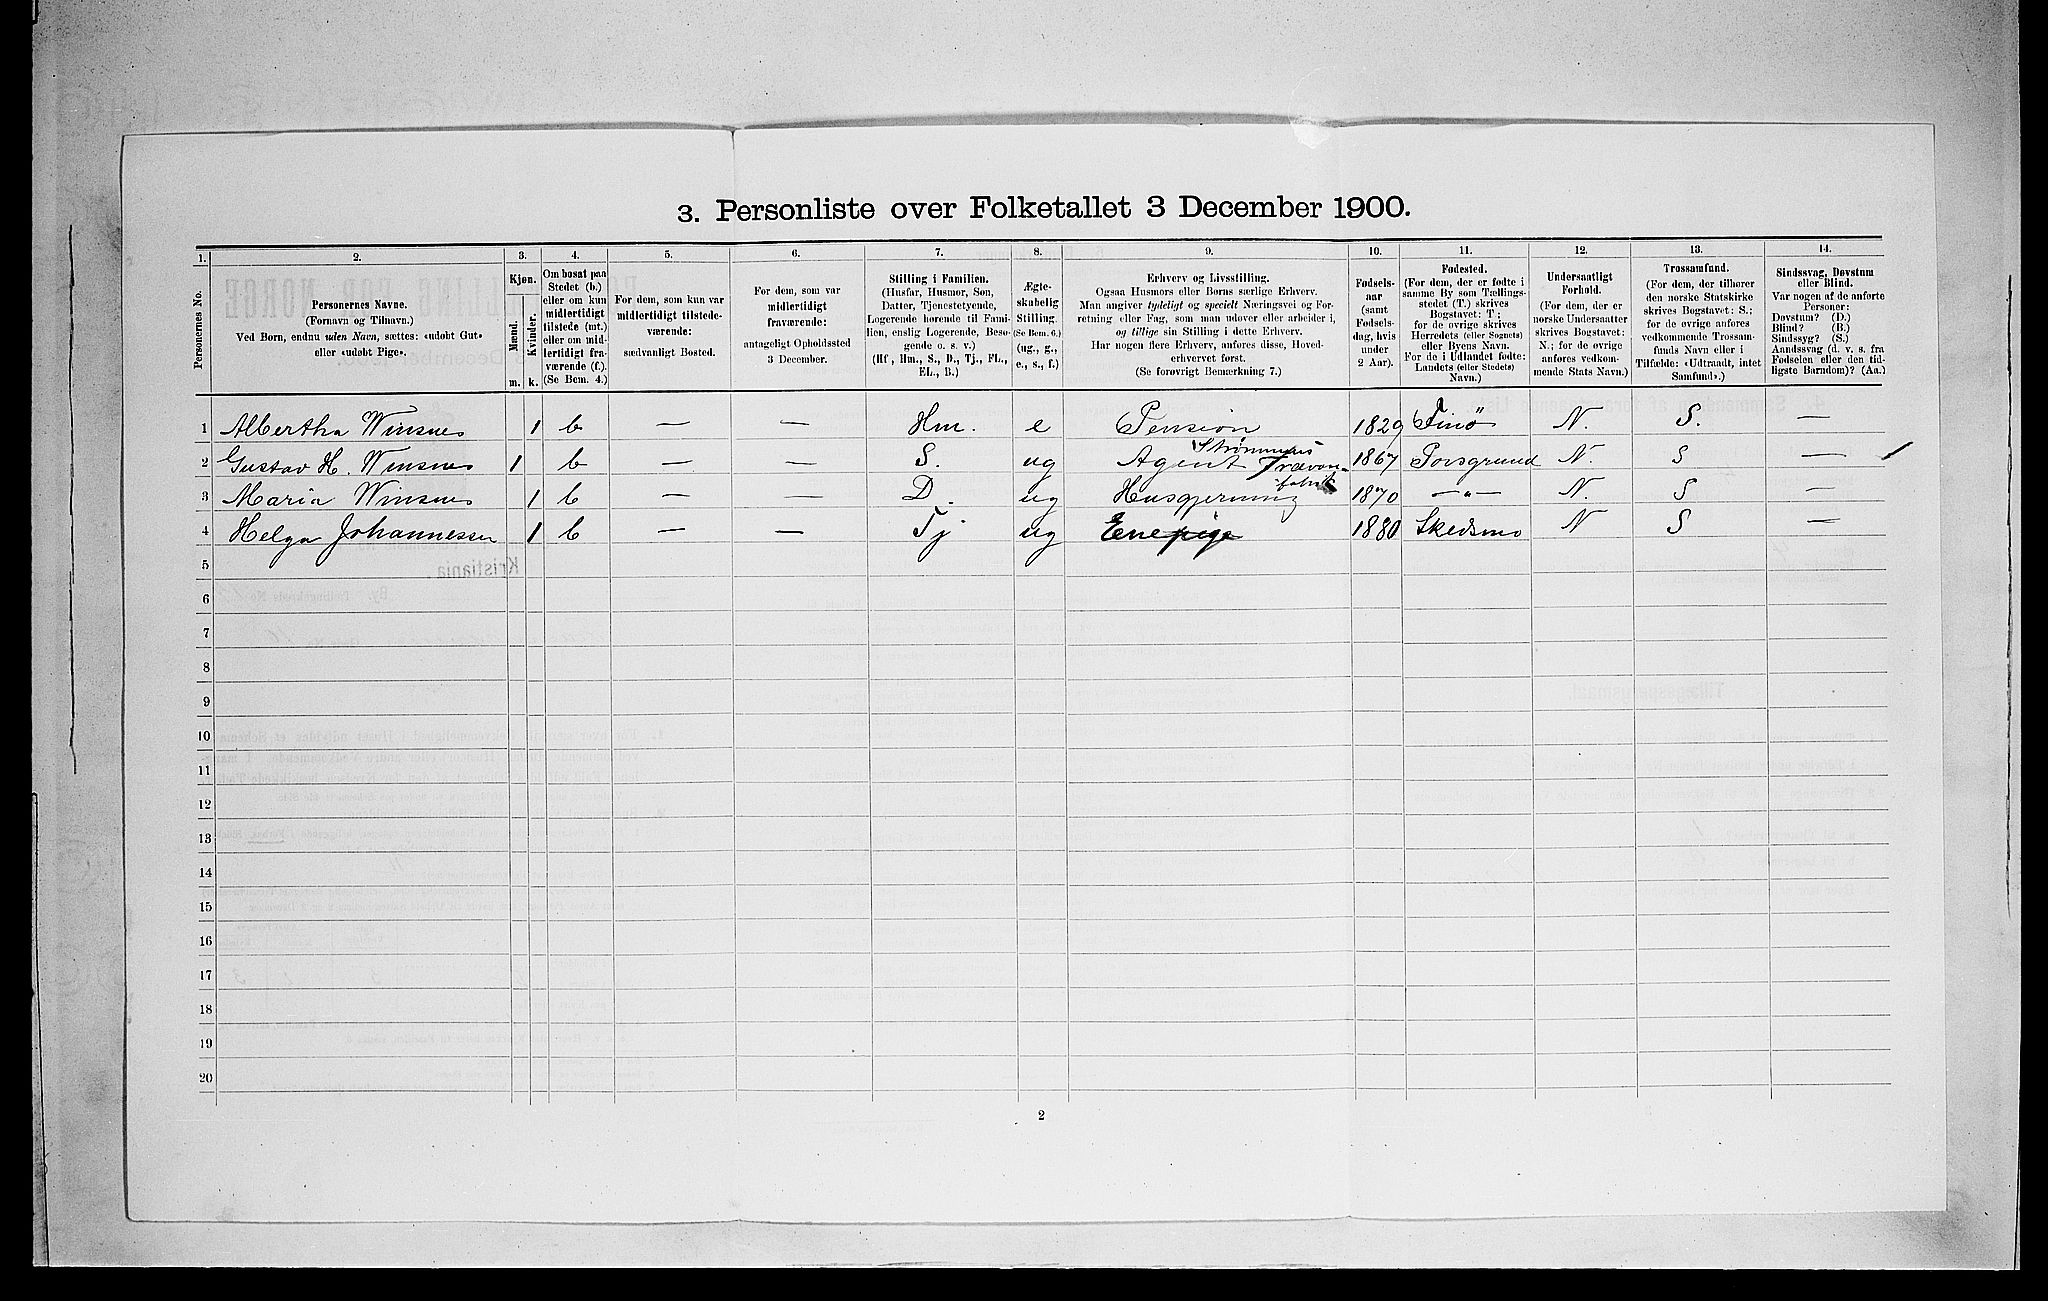 3. Personliste over Folketallet 3 December 1900.
1. 2. 3. 4. 5. 6. 7. 8. 9. 10. 11. 12. 13. 14.
Personernes No.
Personernes Navne.
(Fornavn og Tilnavn.)
Ved Børn, endnu uden Navn, sættes: «udøbt Gut»
eller «udøbt Pige».
Kjøn.
Mænd.
Kvinder.
m. k.
Om bosat paa
Stedet (b.)
eller om kun
midlertidigt
tilstede (mt.)
eller om mid-
lertidigt fra-
værende (f.).
(Se Bem. 4.)
For dem, som kun var
midlertidigt tilstede-
værende:
sædvanligt Bosted.
For dem, som var
midlertidigt
fraværende:
antageligt Opholdssted
3 December.
Stilling i Familien.
(Husfar, Husmor, Søn,
Datter, Tjenestetyende,
Logerende hørende til Fami-
lien, enslig Logerende, Besø-
gende o. s. v.)
(Hf, Hm., S., D., Tj., FL.,
EL., B.)
Ægte-
skabelig
Stilling.
(Se Bem. 6.)
(ug., g.,
e., s., f.)
Erhverv og Livsstilling.
Ogsaa Husmors eller Børns særlige Erhverv.
Man angiver tydeligt og specielt Næringsvei og For-
retning eller Fag, som man udøver eller arbeider i,
og tillige sin Stilling i dette Erhverv.
Har nogen flere Erhverv, anføres disse, Hoved-
erhvervet først.
(Se forøvrigt Bemærkning 7.)
Fødsels-
aar
(samt
Fødsels-
dag, hvis
under
2 Aar).
Fødested.
(For dem, der er fødte i
samme By som Tællings-
stedet (T.) skrives
Bogstavet: T;
for de øvrige skrives
Herredets (eller Sognets)
eller Byens Navn.
For de i Udlandet fødte:
Landets (eller Stedets)
Navn.)
Undersaatligt
Forhold.
(For dem, der er
norske Undersaatter
skrives Bogstavet:
N.; for de øvrige
anføres vedkom-
mende Stats Navn.)
Trossamfund.
(For dem, der tilhører
den norske Statskirke
skrives Bogstavet: S.;
for de øvrige anføres
vedkommende Trossam-
funds Navn eller i
Tilfælde: «Udtraadt, intet
Samfund».)
Sindssvag, Døvstum
eller Blind.
Var nogen af de anførte
Personer:
Døvstum? (D.)
Blind? (B.)
Sindssyg? (S.)
Aandssvag (d. v. s. fra
Fødselen eller den tid-
ligste Barndom)? (Aa.)
1 Albertha Winsnes 1 b — — Hm. e Pension 1829 Finø N. S. —
2 Gustav H. Winsnes 1 b — — S. ug Agent Strømmens Trævare-fabrik 1867 Porsgrund N. S —
3 Maria Winsnes 1 b — — D. ug Husgjerning 1870 —"— N. S —
4 Helga Johannessen 1 b — — Tj ug Enepige 1880 Skedsmo N S —
5
6
7
8
9
10
11
12
13
14
15
16
17
18
19
20
2